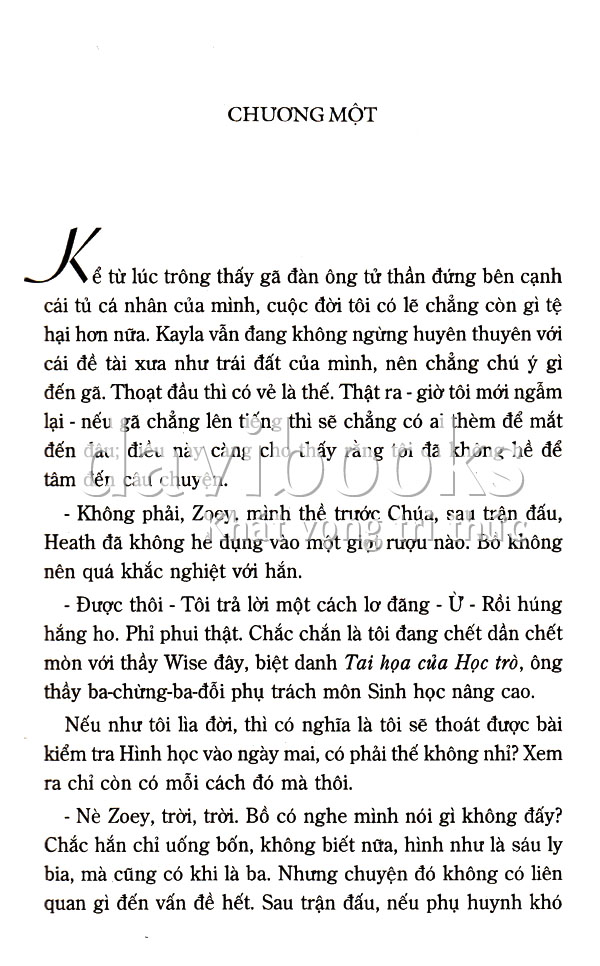 CHƯƠNG MỘT
Kể từ lúc trông thấy gã đàn ông tử thần đứng bên cạnh
cái tủ cá nhân của mình, cuộc đời tôi có lẽ chẳng còn gì tệ
hại hơn nữa. Kayla vẫn đang không ngừng huyên thuyên với
cái đề tài xưa như trái đất của mình, nên chẳng chú ý gì
đến gã. Thoạt đầu thì có vẻ là thế. Thật ra - giờ tôi mới ngẫm
lại - nếu gã chẳng lên tiếng thì sẽ chẳng có ai thèm để mắt
đến đâu; điều này càng cho thấy rằng tôi đã không hề để
tâm đến câu chuyện.
davibooks
- Không phải, Zoey, mình thề trước Chúa, sau trận đấu,
Khát vọng tri thức
Heath đã không hề đụng vào một giọt rượu nào. Bồ không
nên quá khắc nghiệt với hắn.
- Được thôi - Tôi trả lời một cách lơ đãng - Ừ - Rồi húng
hắng ho. Phỉ phui thật. Chắc chắn là tôi đang chết dần chết
mòn với thầy Wise đây, biệt danh Tai họa của Học trò, ông
thầy ba-chừng-ba-đỗi phụ trách môn Sinh học nâng cao.
Nếu như tôi lìa đời, thì có nghĩa là tôi sẽ thoát được bài
kiểm tra Hình học vào ngày mai, có phải thế không nhỉ? Xem
ra chỉ còn có mỗi cách đó mà thôi.
- Nè Zoey, trời, trời. Bồ có nghe mình nói gì không đấy?
Chắc hắn chỉ uống bốn, không biết nữa, hình như là sáu ly
bia, mà cũng có khi là ba. Nhưng chuyện đó không có liên
quan gì đến vấn đề hết. Sau trận đấu, nếu phụ huynh khó